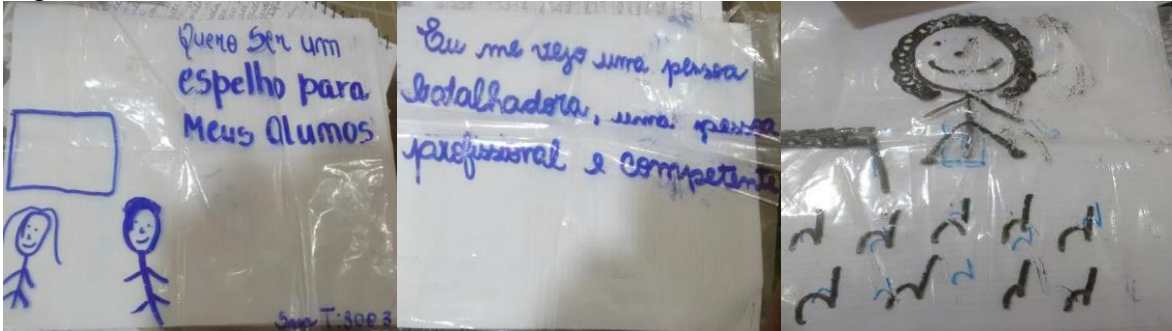 Quero Ser um
espelho para
Meus Alumos
T:3003
Eu me vejo uma pessoa
batalhadora, uma pessoa
profissional e competente